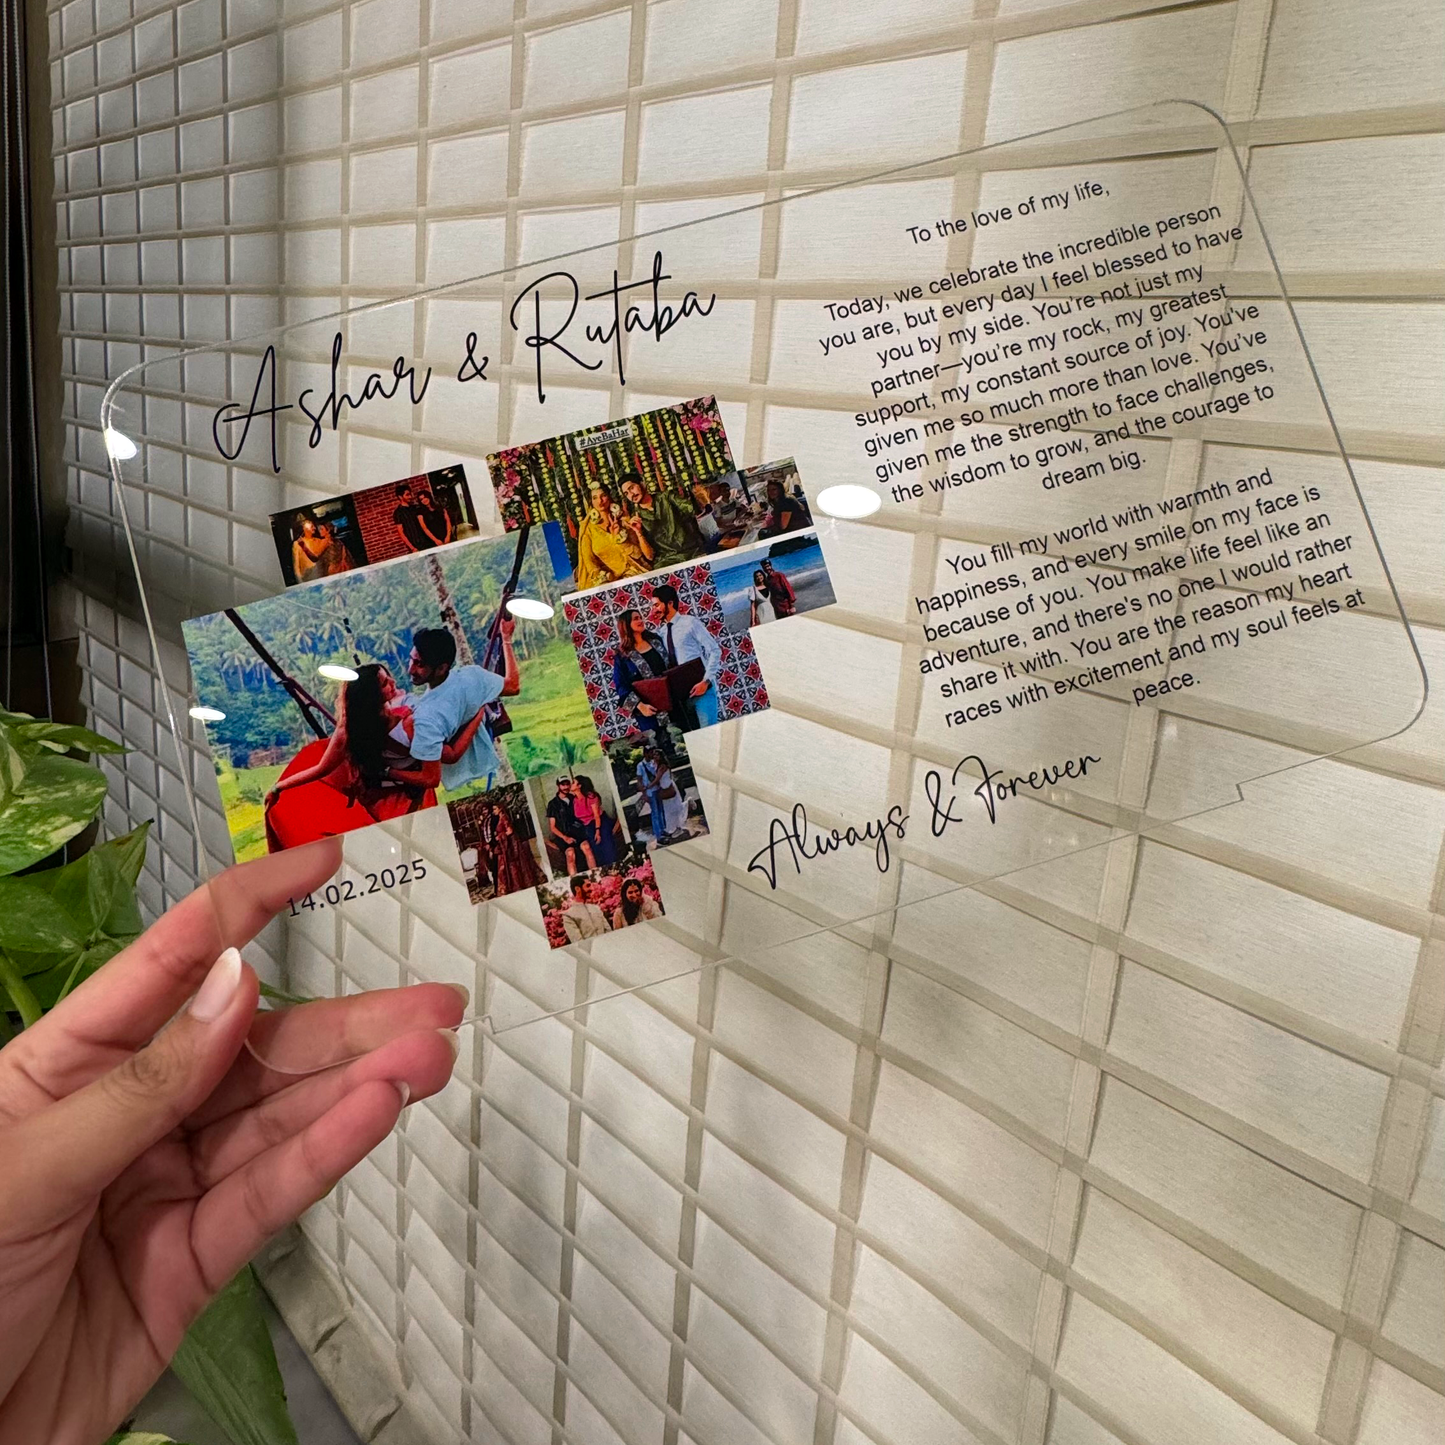 Ashar & Rutaba
#AyeBaHar
14.02.2025
To the love of my life,
Today, we celebrate the incredible person
you are, but every day I feel blessed to have
you by my side. You're not just my
partner—you're my rock, my greatest
support, my constant source of joy. You've
given me so much more than love. You've
given me the strength to face challenges,
the wisdom to grow, and the courage to
dream big.
You fill my world with warmth and
happiness, and every smile on my face is
because of you. You make life feel like an
adventure, and there's no one I would rather
share it with. You are the reason my heart
races with excitement and my soul feels at
peace.
Always & Forever